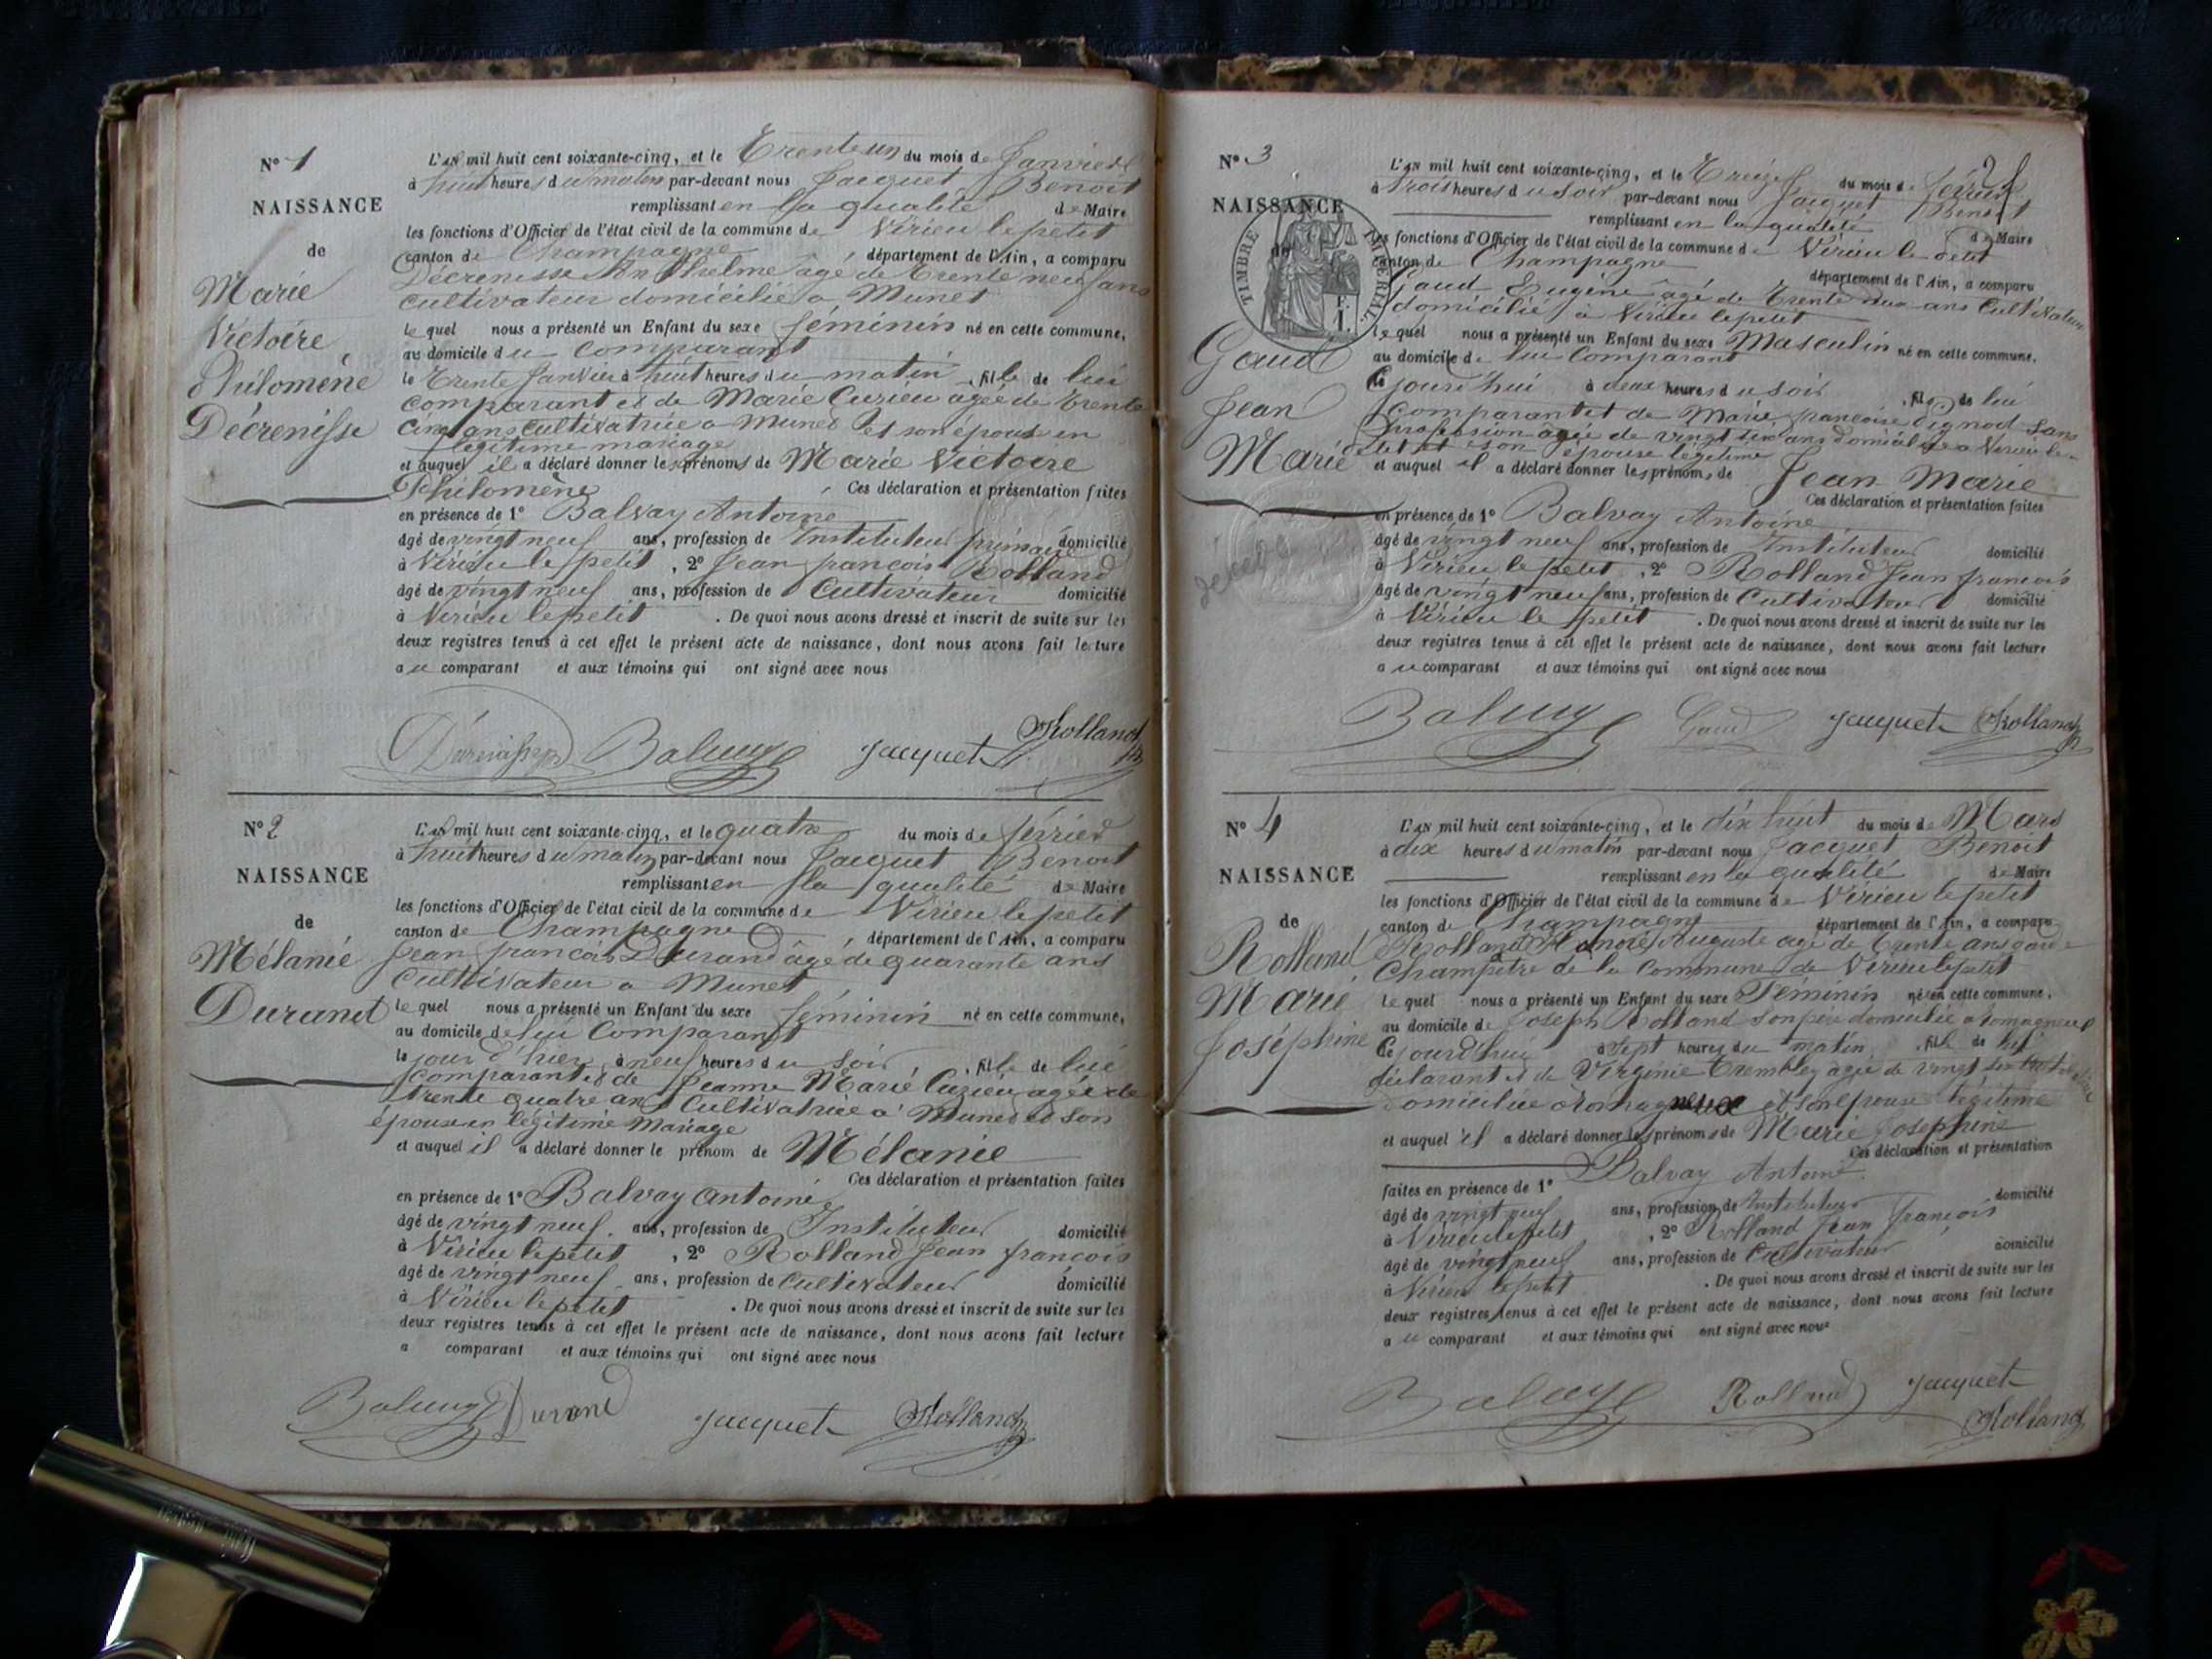 N° 1
NAISSANCE
de
Marie
Victoire
Philomène
Décrenisse
L'AN mil huit cent soixante-cinq, et le Trente un du mois de Janvier
à huit heures du matin par-devant nous Jacquet Benoit
remplissant en la qualité de Maire
les fonctions d'Officier de l'état civil de la commune de Virieu le petit
canton de Champagne département de l'Ain, a comparu
Décrenisse Anthelme âgé de Trente neuf ans
cultivateur domicilié a Munet
le quel nous a présenté un Enfant du sexe féminin né en cette commune,
au domicile du comparant
le Trente Janvier à huit heures du matin, fille de lui
comparant et de Marie Cuzieu agée de Trente
Cinq ans Cultivatrice a Munet et son épouse en
légitime mariage
et auquel il a déclaré donner les prénoms de Marie Victoire
Philomène Ces déclaration et présentation faites
en présence de 1° Balvay Antoine
âgé de vingt neuf ans, profession de Instituteur primaire domicilié
à Virieu le petit, 2° Jean françois Rolland
âgé de vingt neuf ans, profession de Cultivateur domicilié
à Virieu le petit. De quoi nous avons dressé et inscrit de suite sur les
deux registres tenus à cet effet le présent acte de naissance, dont nous avons fait lecture
au comparant et aux témoins qui ont signé avec nous
Balvay Jacquet Rolland
N° 2
NAISSANCE
de
Mélanie
Durand
L'AN mil huit cent soixante-cinq, et le quatre du mois de février
à huit heures du matin par-devant nous Jacquet Benoit
remplissant en la qualité de Maire
les fonctions d'Officier de l'état civil de la commune de Virieu le petit
canton de Champagne département de l'Ain, a comparu
Jean françois Durand âgé de quarante ans
Cultivateur a Munet
le quel nous a présenté un Enfant du sexe féminin né en cette commune,
au domicile de lui Comparant
le jour d'hier à neuf heures du soir, fille de lui
comparant et de Jeanne Marie Cuzieu agée de
trente quatre ans Cultivatrice a Munet et son
épouse en légitime Mariage
et auquel il a déclaré donner le prénom de Mélanie
Ces déclaration et présentation faites
en présence de 1° Balvay Antoine
âgé de vingt neuf ans, profession de Instituteur domicilié
à Virieu le petit, 2° Rolland Jean françois
âgé de vingt neuf ans, profession de Cultivateur domicilié
à Virieu le petit. De quoi nous avons dressé et inscrit de suite sur les
deux registres tenus à cet effet le présent acte de naissance, dont nous avons fait lecture
a comparant et aux témoins qui ont signé avec nous
Balvay Durand Jacquet Rolland
N° 3
NAISSANCE
de
TIMBRE IMPERIAL
Gaud
Jean
Marie
L'AN mil huit cent soixante-cinq, et le Treize du mois de février
à trois heures du soir par-devant nous Jacquet Benoit
remplissant en la qualité de Maire
les fonctions d'Officier de l'état civil de la commune de Virieu le petit
canton de Champagne département de l'Ain, a comparu
Gaud Eugène âgé de Trente deux ans Cultivateur
domicilié à Virieu le petit
le quel nous a présenté un Enfant du sexe Masculin né en cette commune,
au domicile de lui Comparant
ce jourd'hui à deux heures du soir, fils de lui
Comparant et de Marie françoise Pignod Sans
profession âgée de vingt ans domiciliée a Virieu le
petit et son épouse légitime
et auquel il a déclaré donner les prénoms de Jean Marie
Ces déclaration et présentation faites
en présence de 1° Balvay Antoine
âgé de vingt neuf ans, profession de Instituteur domicilié
à Virieu le petit, 2° Rolland Jean françois
âgé de vingt neuf ans, profession de Cultivateur domicilié
à Virieu le petit. De quoi nous avons dressé et inscrit de suite sur les
deux registres tenus à cet effet le présent acte de naissance, dont nous avons fait lecture
au comparant et aux témoins qui ont signé avec nous
Balvay Gaud Jacquet Rolland
N° 4
NAISSANCE
de
Rolland
Marie
Joséphine
L'AN mil huit cent soixante-cinq, et le dix huit du mois de Mars
à dix heures du matin par-devant nous Jacquet Benoit
remplissant en la qualité de Maire
les fonctions d'Officier de l'état civil de la commune de Virieu le petit
canton de Champagne département de l'Ain, a comparu
Rolland Honoré Auguste âgé de Trente ans garde
Champêtre de la Commune de Virieu le petit
le quel nous a présenté un Enfant du sexe Féminin né en cette commune,
au domicile de Joseph Rolland son père domicilié a Romagneux
Ce jourd'hui à Sept heures du matin, fille de lui
déclarant et de Virginie Trembley agée de vingt
domiciliée a Romagneux et son épouse légitime
et auquel il a déclaré donner les prénoms de Marie Joséphine
Ces déclaration et présentation
faites en présence de 1° Balvay Antoine
âgé de vingt neuf ans, profession de Instituteur domicilié
à Virieu le petit, 2° Rolland Jean françois
âgé de vingt neuf ans, profession de Cultivateur domicilié
à Virieu le petit. De quoi nous avons dressé et inscrit de suite sur les
deux registres tenus à cet effet le présent acte de naissance, dont nous avons fait lecture
au comparant et aux témoins qui ont signé avec nous
Balvay Rolland Jacquet
Rolland